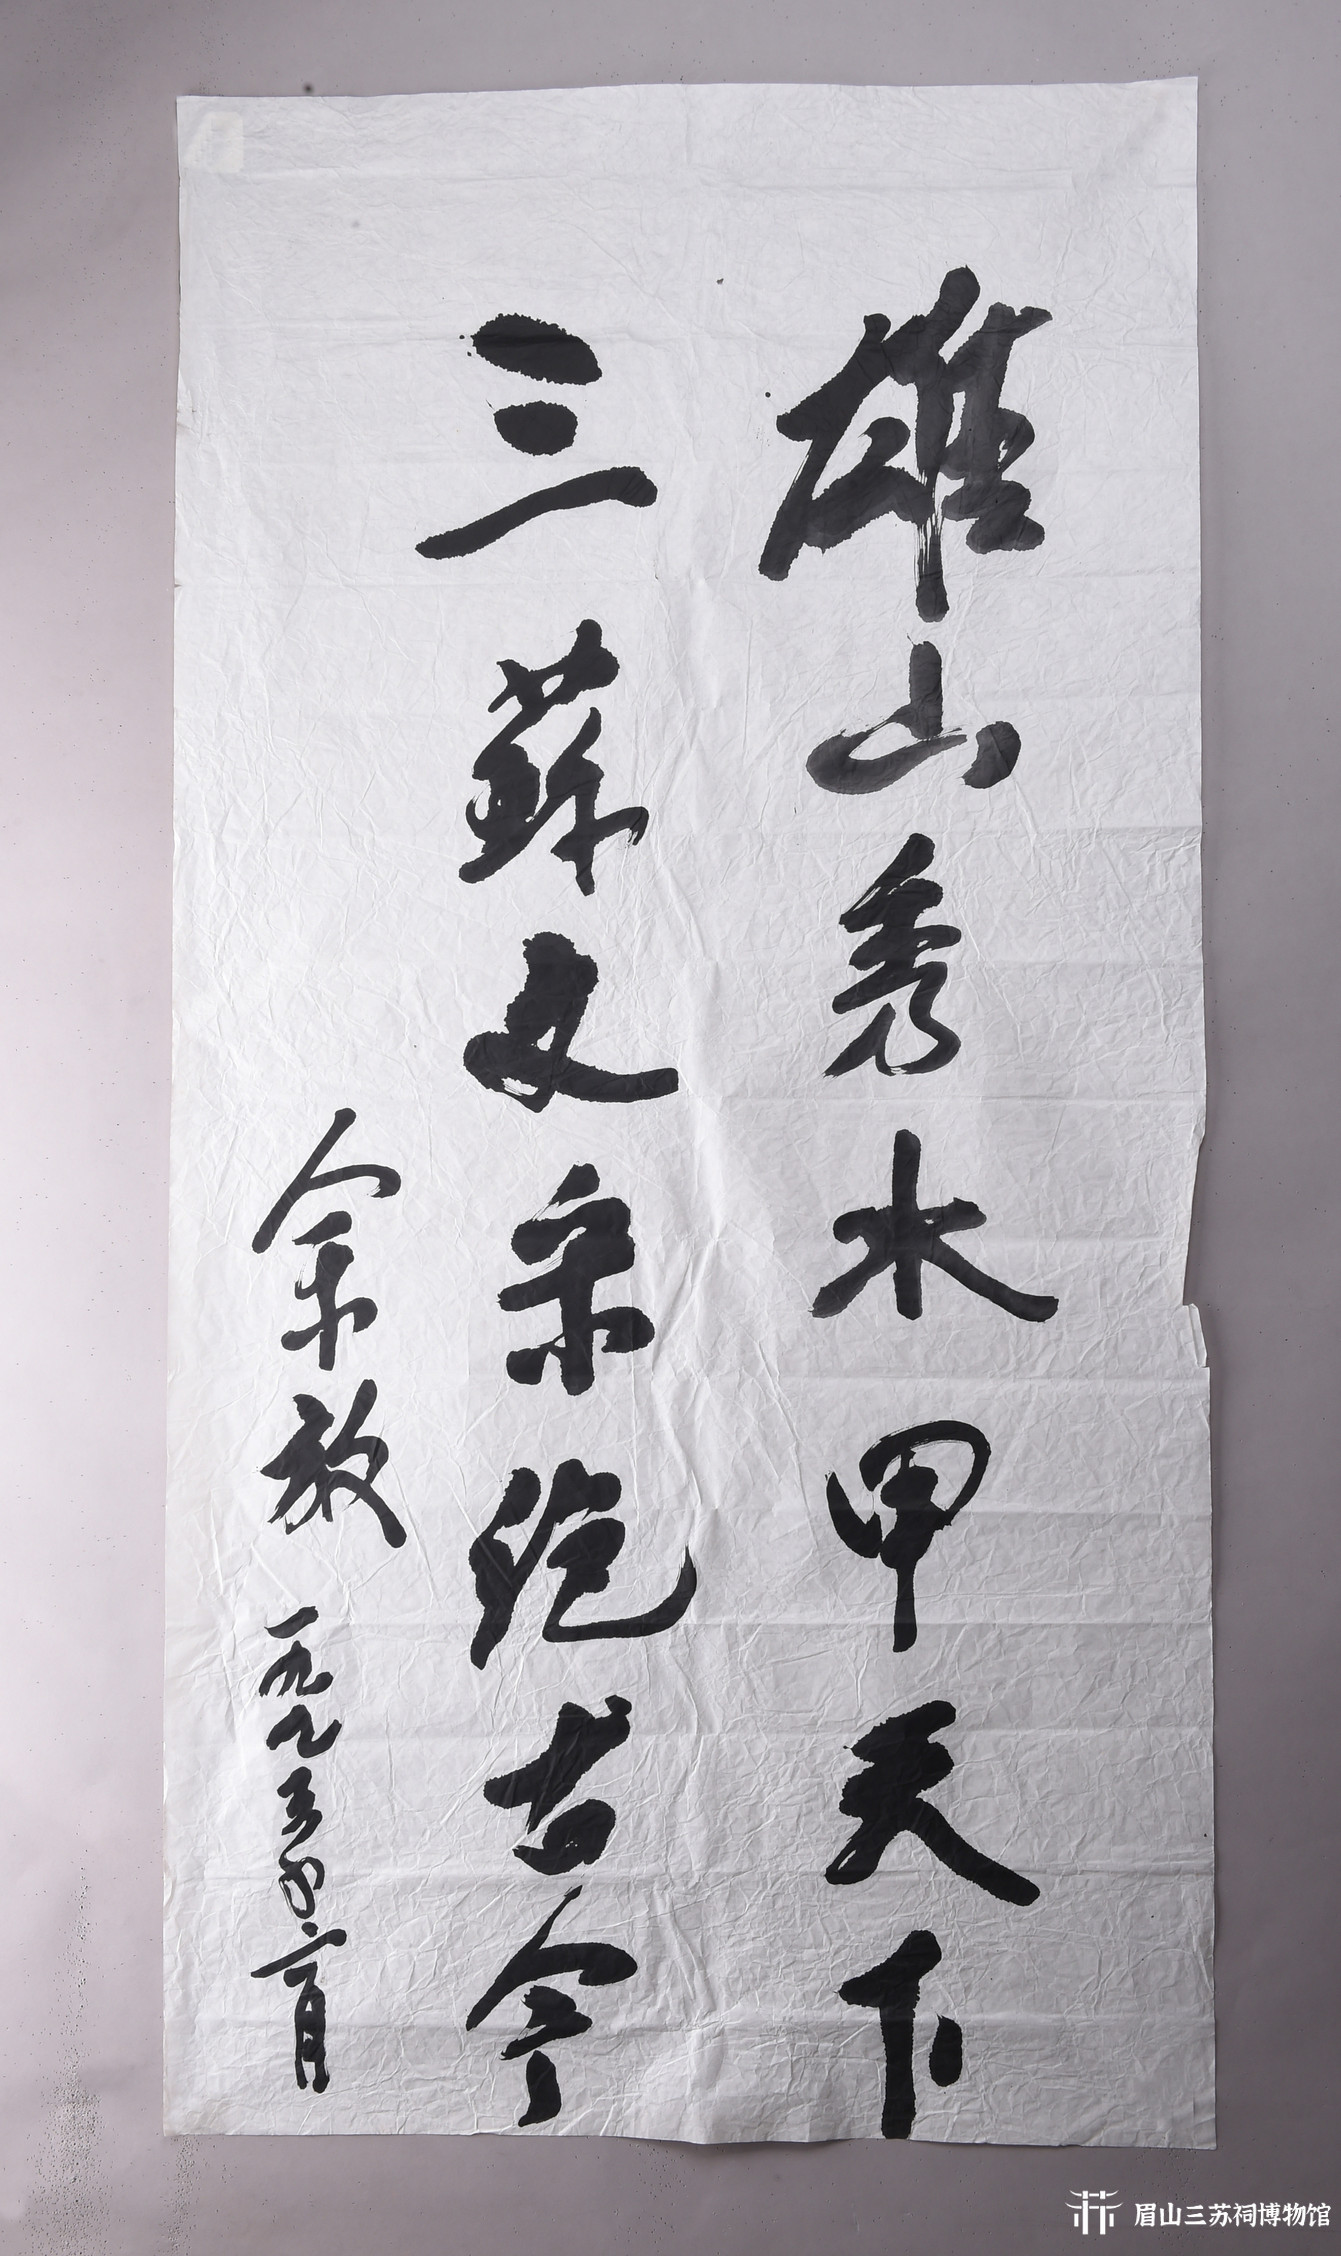 雄山秀水甲天下
三蘇文宗绝古今
余放 一九九三年六月
眉山三苏祠博物馆